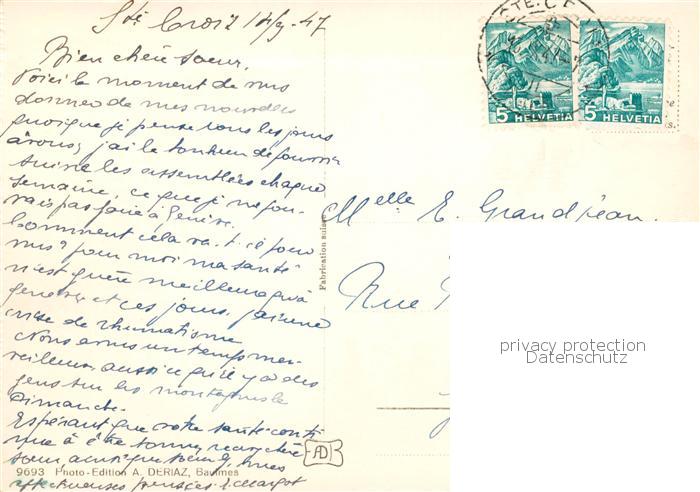 Ste Croix 14/9-47
Bien chère Soeur,
Voici le moment de vous
donner de mes nouvelles
quoique je pense tous les jours
à vous, j'ai le bonheur de pouvoir
suivre les assemblées chaque
semaine, ce que je ne pou-
vais pas faire à Genève.
Comment cela va-t-il pour
vous? pour moi ma santé
n'est guère meilleure qu'à
Genève et ces jours j'ai une
crise de rhumatisme
Nous avons un temps mer-
veilleux, aussi ce qu'il y a des
gens sur les montagnes le
Dimanche.
Espérant que votre santé conti
nue à être bonne, recevez chère
soeur, ainsi que
affectueuses pensées E. Margot
9693 Photo-Edition A. DERIAZ, Baulmes
AD
Fabrication suisse
STE. C
5 HELVETIA
5 HELVETIA
Melle E. Grandjean
Rue
privacy protection
Datenschutz